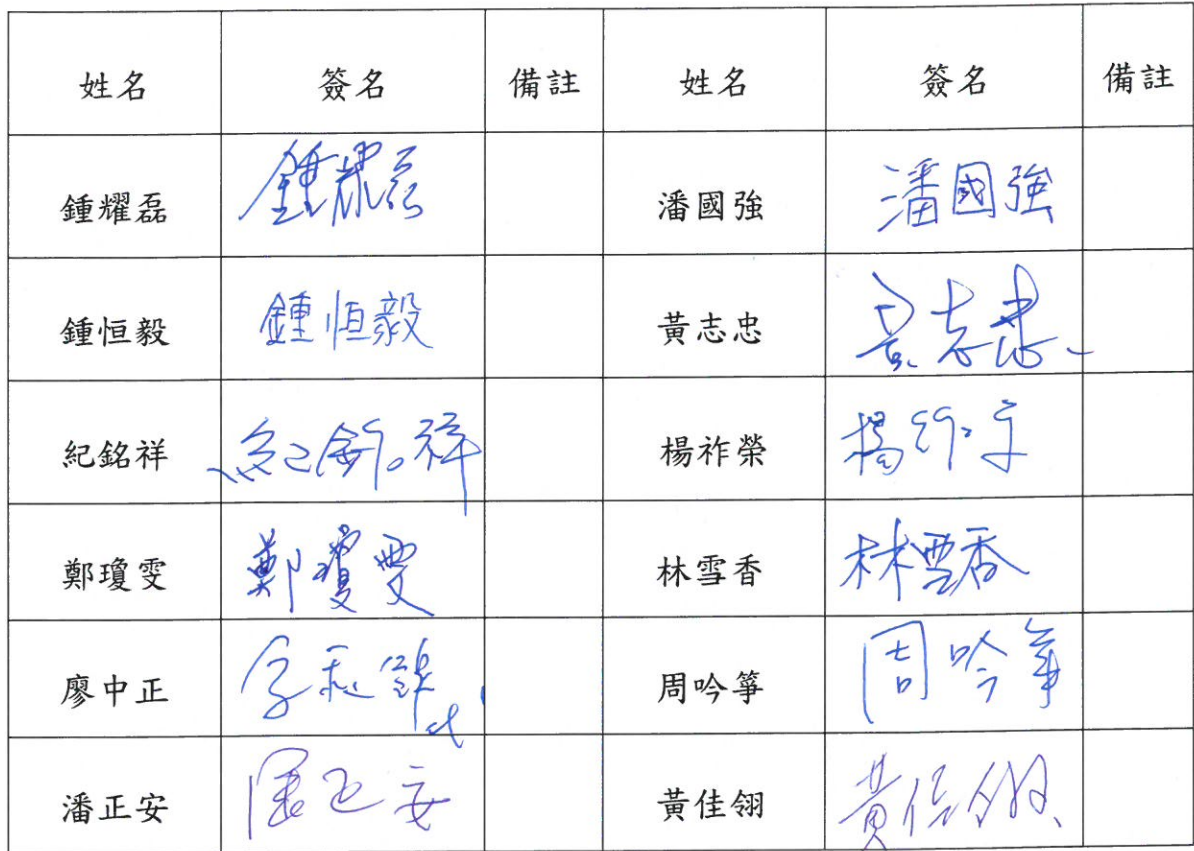 姓名 簽名 備註 姓名 簽名 備註
鍾耀磊 鍾耀磊 潘國強 潘國強
鍾恒毅 鍾恒毅 黃志忠 黃志忠
紀銘祥 紀銘祥 楊祚榮 楊
鄭瓊雯 鄭瓊雯 林雪香 林雪香
廖中正 代 周吟箏 周吟箏
潘正安 潘正安 黃佳翎 黃佳翎